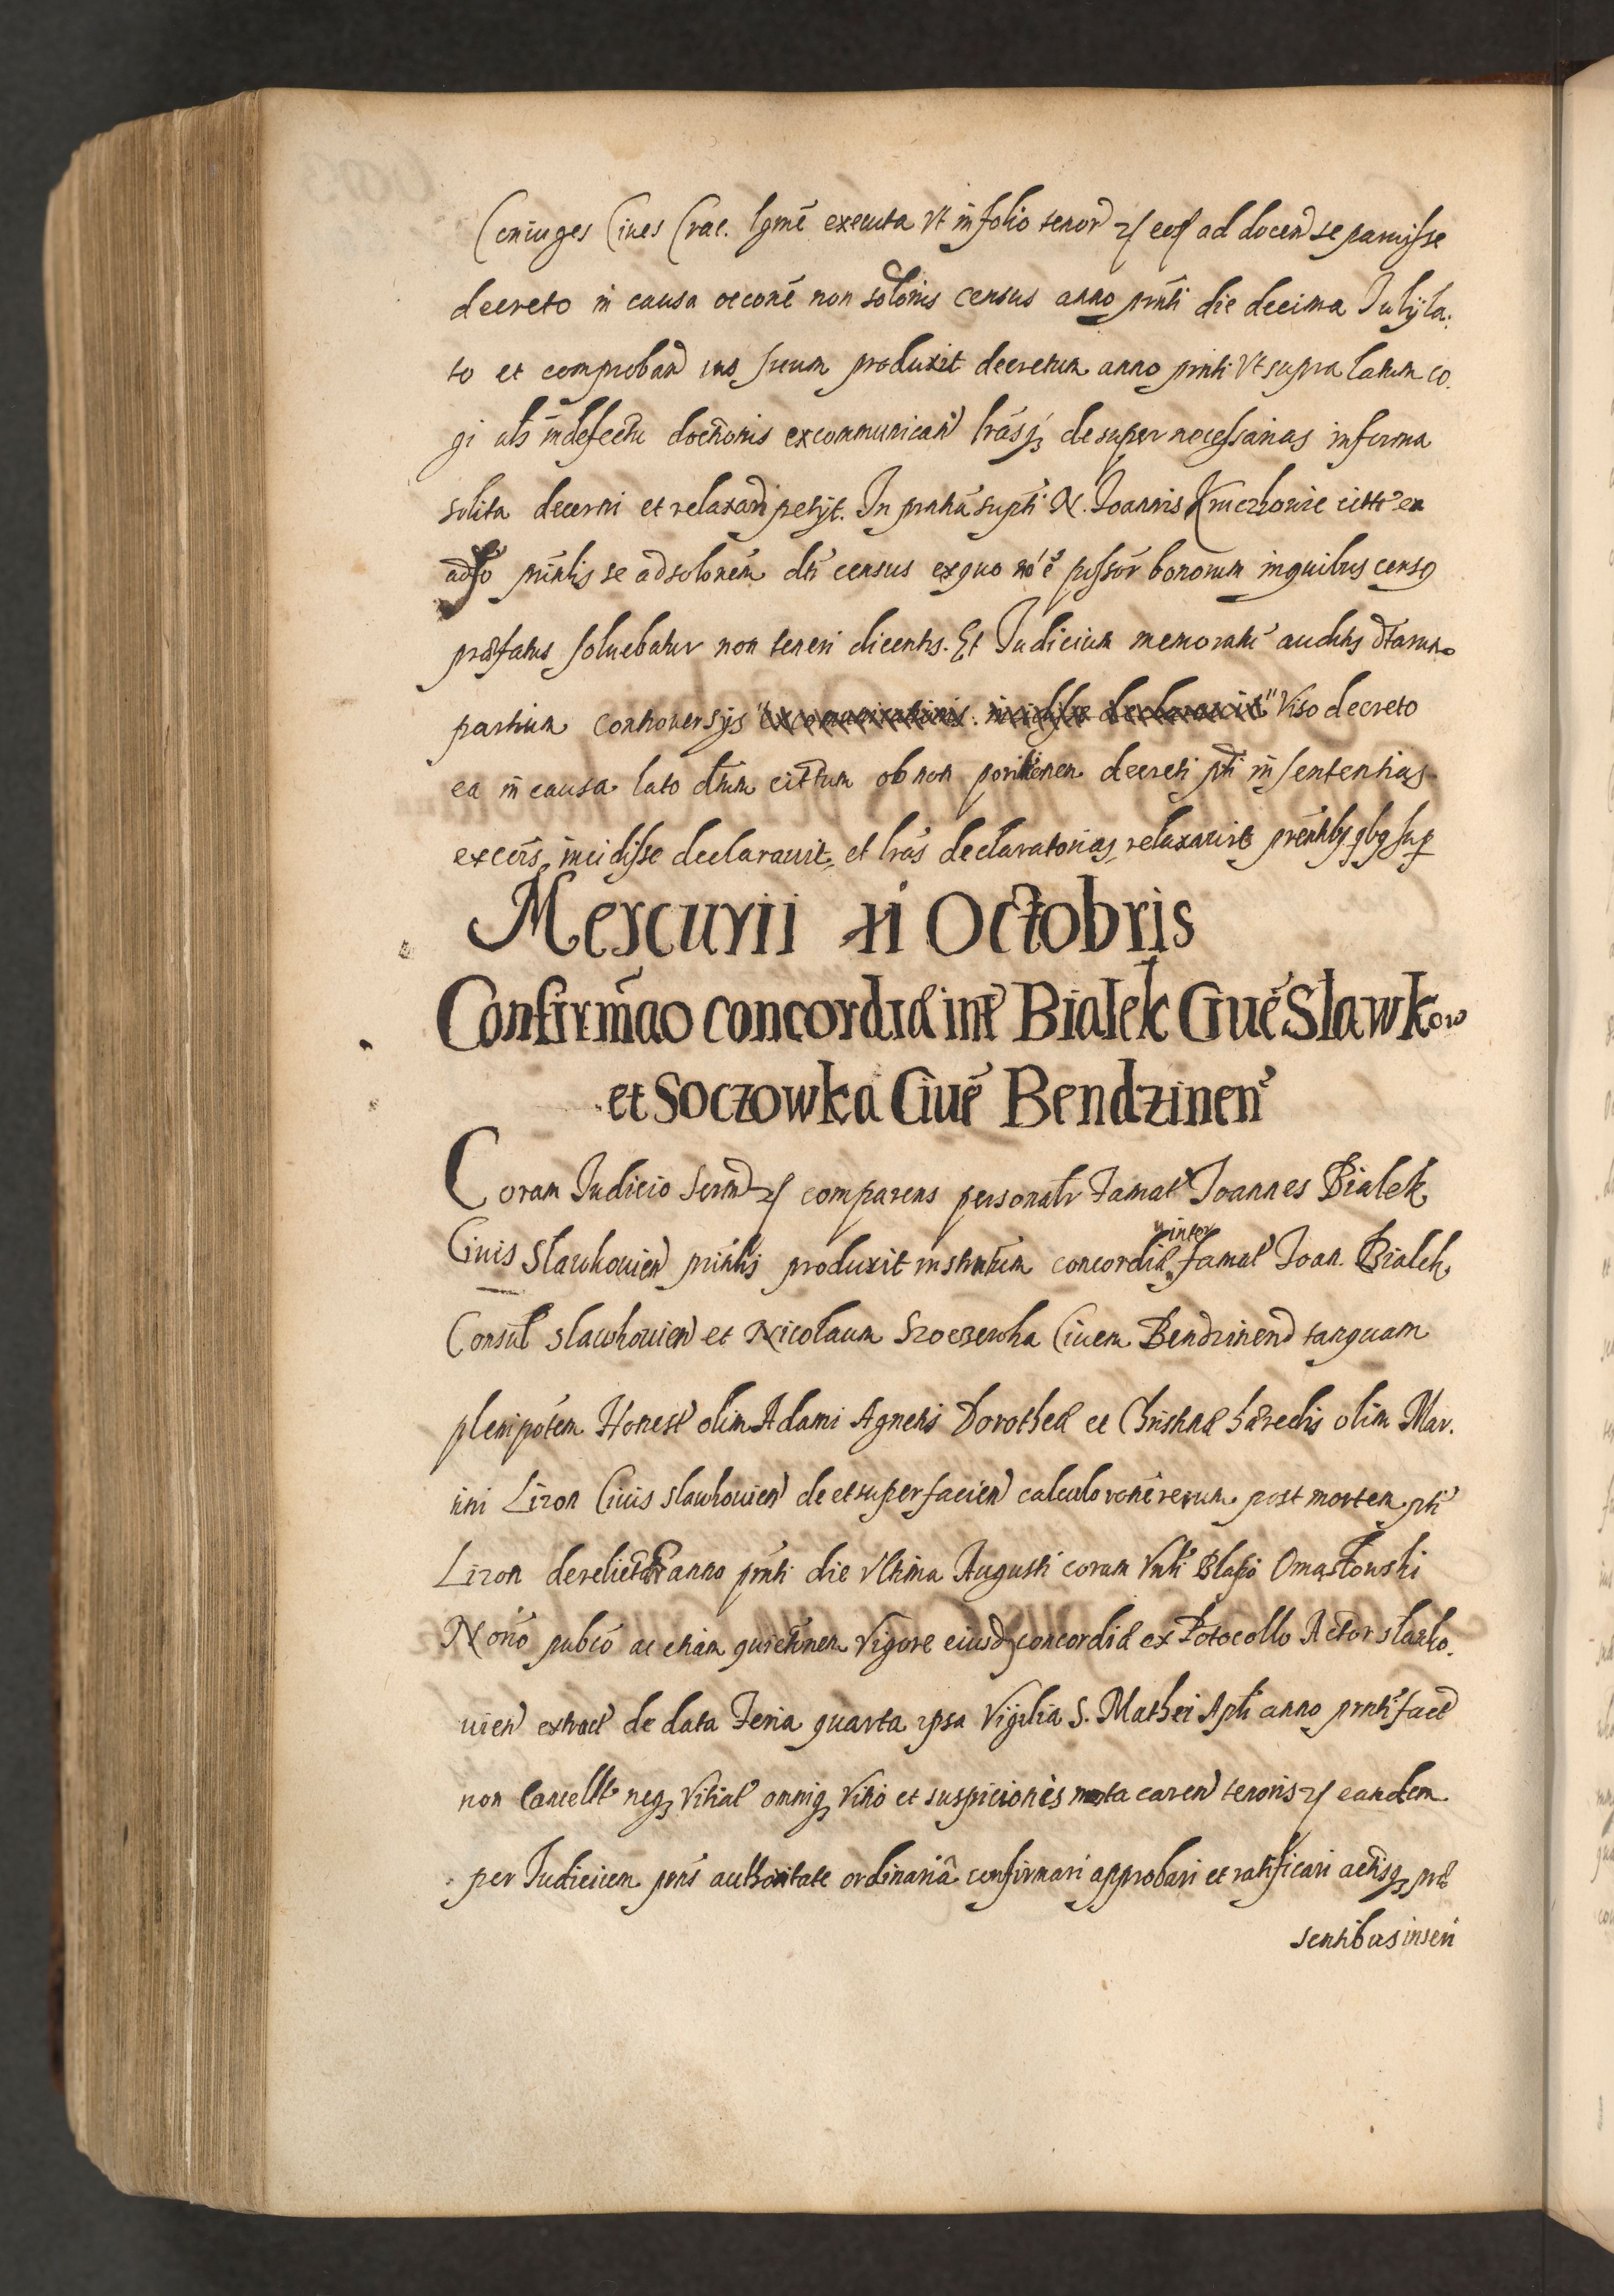 Coniuges Ciues Crac. lgmē executa vt in folio tenor̄ ꝛſ eoſ ad docen̄ se paruisse
decreto in causa oeconē non solōnis census anno prn̄ti die decima Julÿ la.
to et comproban̄ ius suum produxit decretum anno prn̄ti vt supra latum co.
gi als̄ in defectu doctionis excommunicari lr̄asq₃ desuper necessarias in forma
solita decerni et relaxari petÿt. In pn̄tia supti N. Joannis Kruczkowic citti ex
adſo prn̄tis se ad solonem dti census ex quo nō ē possor̄ bonorum in quibus census
præfatus soluebatur non teneri dicentis. Et Judicium memoratū auditis dtarum
partium controuersÿs "excommunicationis incidisse declarauit" Viso decreto
ea in causa lato dtum cittum ob non paritionem decreti pti in sententias
excōis incidisse declarauit et lr̄as declaratorias relaxauit prn̄tibꝫ qbꝫ sup̄
Mercurii xi Octobris
Confirmāo concordiæ int̄ Bialek Ciuē Slawkow
et Soczowka Ciuē Bendzinen̄
Coram Judicio Seren̄ ꝛſ comparens personalr̄ Famat̄ Joannes Bialek
Ciuis Slawkouien̄ prn̄tis produxit instrutūm concordiæ "inter famat̄ Joan. Bialek
Consul̄ slawkouien̄ et Nicolaum Szoczewka Ciuem Bendzinen̄ tanquam
plenipotēm Honest̄ olim Adami Agnetis Dorotheæ et Christinæ hæredis olim Mar.
tini Lizon Ciuis slawkouien̄ de et super facien̄ calculo ronē rerum post mortem pti
Lizon derelictar̄ anno prn̄ti die vltima Augusti coram Vnli Blasio Omastowski
Norio pubco ac etiam quietōnem vigore eiusdꝫ concordiæ ex Protocollo Actor̄ slawko.
uien̄ extract̄ de data Feria quarta ipsa Vigilia S. Mathei Apli anno prn̄ti fact̄
non cancellt̄ neqꝫ vitiat̄ omniqꝫ vitio et suspicionis nota caren̄ tenoris ꝛſ eandem
per Judicium pn̄s authoritate ordinariâ confirmari approbari et ratificari actisqꝫ præ
sentibus inseri